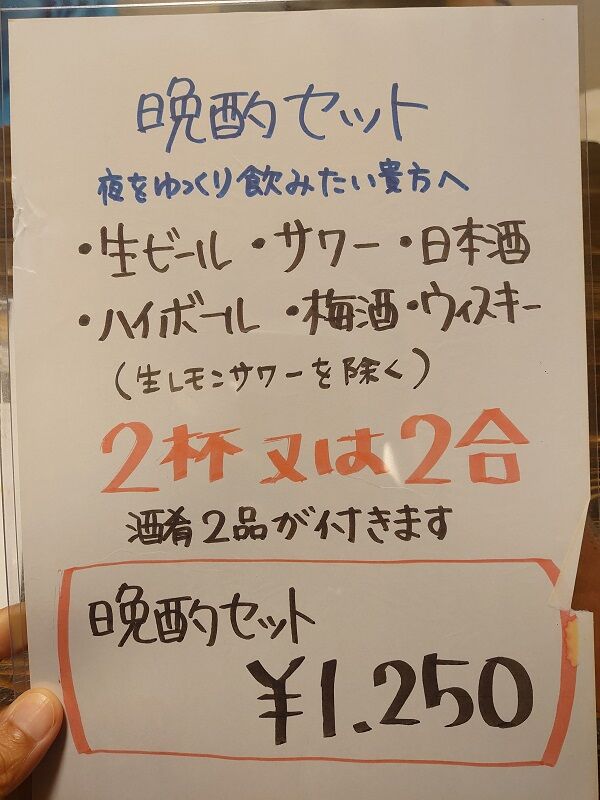 晩酌セット
夜をゆっくり飲みたい貴方へ
・生ビール ・サワー ・日本酒
・ハイボール ・梅酒 ・ウィスキー
(生レモンサワーを除く)
2杯又は2合
酒肴2品が付きます
晩酌セット
¥1.250